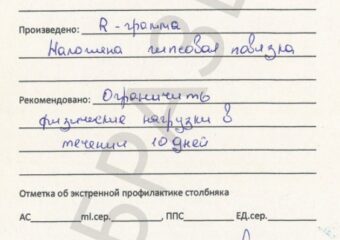 Произведено: R-грамма
Наложена гипсовая повязка
Рекомендовано: Ограничить
физические нагрузки в
течении 10 дней
Отметка об экстренной профилактике столбняка
АС______ml.сер.______, ППС______ЕД.сер.______